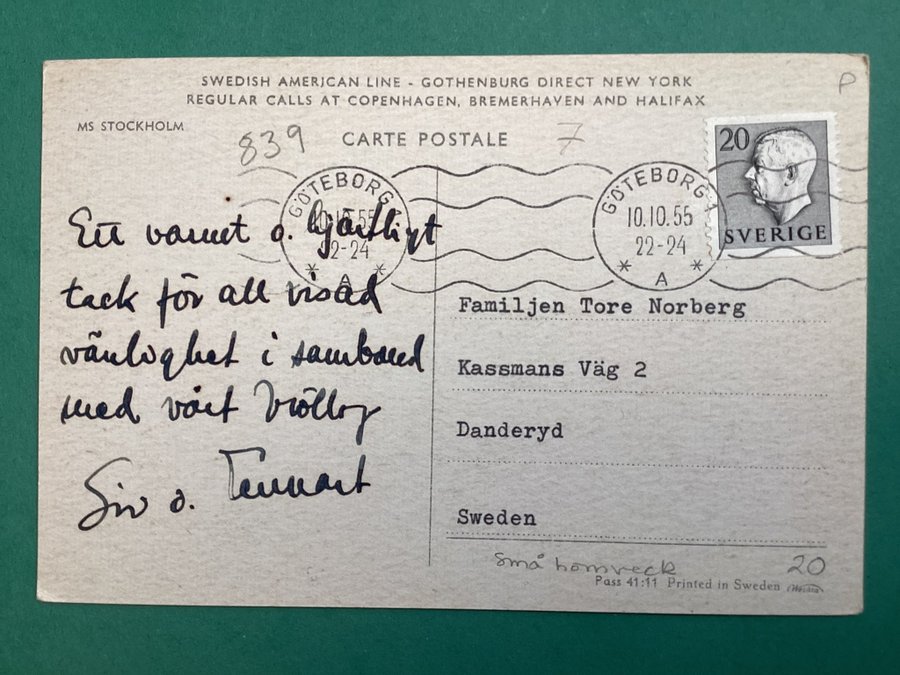 SWEDISH AMERICAN LINE - GOTHENBURG DIRECT NEW YORK
REGULAR CALLS AT COPENHAGEN, BREMERHAVEN AND HALIFAX
P
MS STOCKHOLM
839
CARTE POSTALE
7
20
SVERIGE
GÖTEBORG
10.10.55
22-24
A
GÖTEBORG
10.10.55
22-24
A
Ett varmt o. hjärtligt
tack för all visad
vänlighet i samband
med vårt bröllop
Siv o. Lennart
Familjen Tore Norberg
Kassmans Väg 2
Danderyd
Sweden
små hörnveck
20
Pass 41:11 Printed in Sweden